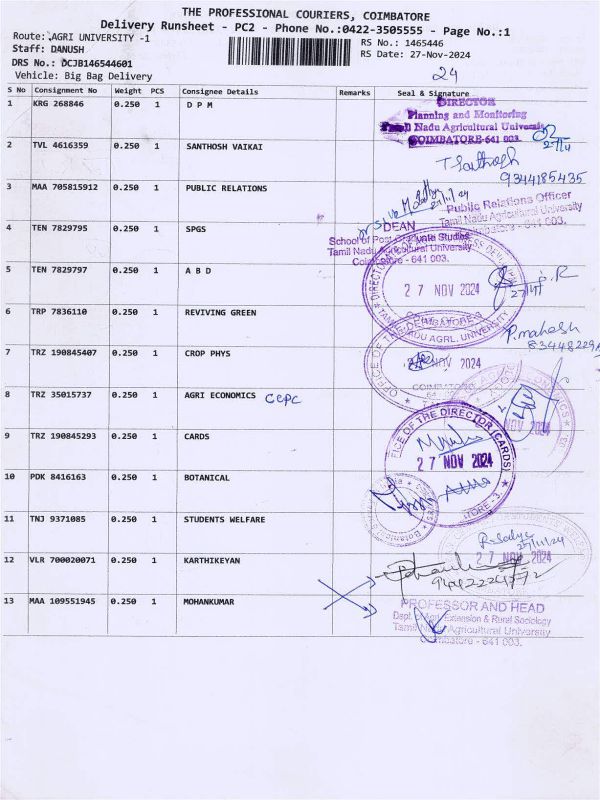 THE PROFESSIONAL COURIERS, COIMBATORE
Delivery Runsheet - PC2 - Phone No.:0422-3505555 - Page No.:1
Route: AGRI UNIVERSITY -1
RS No.: 1465446
Staff: DANUSH
RS Date: 27-Nov-2024
DRS No.: DCJB146544601
Vehicle: Big Bag Delivery
24
S No Consignment No Weight PCS Consignee Details Remarks Seal & Signature
1 KRG 268846 0.250 1 D P M
DIRECTOR
Planning and Monitoring
Tamil Nadu Agricultural University
COIMBATORE-641 003.
27/11
2 TVL 4616359 0.250 1 SANTHOSH VAIKAI
T. Santhosh
9344185435
3 MAA 705815912 0.250 1 PUBLIC RELATIONS
Public Relations Officer
Tamil Nadu Agricultural University
Coimbatore - 641 003.
4 TEN 7829795 0.250 1 SPGS
DEAN
School of Post Graduate Studies
Tamil Nadu Agricultural University
Coimbatore - 641 003.
5 TEN 7829797 0.250 1 A B D
27 NOV 2024
27/11
6 TRP 7836110 0.250 1 REVIVING GREEN
P. mahesh
7 TRZ 190845407 0.250 1 CROP PHYS
NOV 2024
8 TRZ 35015737 0.250 1 AGRI ECONOMICS CCPC
9 TRZ 190845293 0.250 1 CARDS
OFFICE OF THE DIRECTOR (CARDS)
27 NOV 2024
10 PDK 8416163 0.250 1 BOTANICAL
11 TNJ 9371085 0.250 1 STUDENTS WELFARE
27/11/24
27 NOV 2024
12 VLR 700020071 0.250 1 KARTHIKEYAN
13 MAA 109551945 0.250 1 MOHANKUMAR
PROFESSOR AND HEAD
Dept. of Agri. Extension & Rural Sociology
Tamil Nadu Agricultural University
Coimbatore - 641 003.